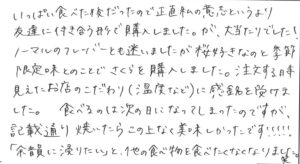 いっぱい食べた後だったので正直私の意志というより
友達に付き合う形で購入しました。が、大当たりでした!
ノーマルのフレーバーとも迷いましたが桜好きなのと季節
限定味とのことでさくらを購入しました。注文する時
見えたお店のこだわり(温度など)に感銘を受けま
した。 食べるのは次の日になってしまったのですが、
記載通り焼いたらこの上なく美味しかったです!!!!!
「余韻に浸りたい」と、他の食べ物を食べたくなくなりました。